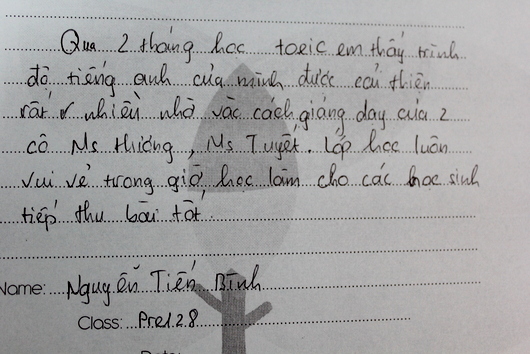 Qua 2 tháng học toeic em thấy trình
độ tiếng anh của mình được cải thiện
rất nhiều nhờ vào cách giảng dạy của 2
cô Ms thương, Ms Tuyết. Lớp học luôn
vui vẻ trong giờ học làm cho các học sinh
tiếp thu bài tốt.
Name: Nguyễn Tiến Bình
Class: Pre1.28